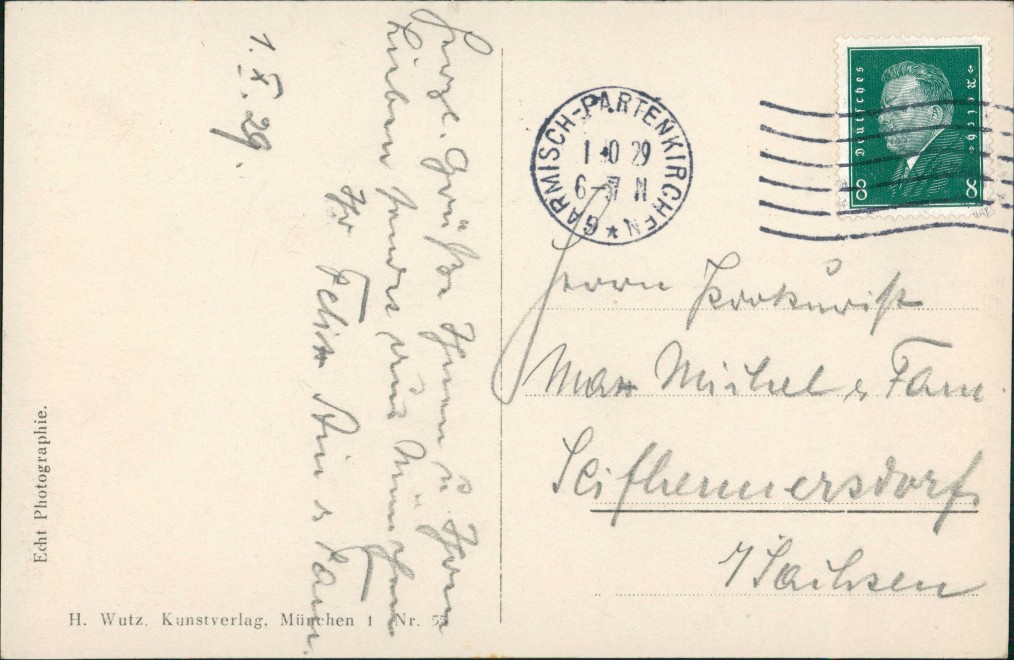 1. X. 29.
Herzl. Grüße Ihnen u. Ihren
Lieben sendet aus München
Ihr Felix u. Fam.
Echt Photographie.
H. Wutz. Kunstverlag, München 1 Nr.
GARMISCH-PARTENKIRCHEN
1 10 29
6-7 N
Deutsches Reich
8 8
Herrn Prokurist
Max Michel u Fam.
Seifhennersdorf
i/Sachsen